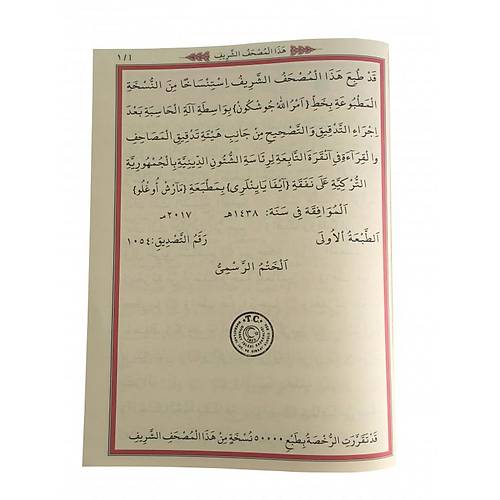 هَذَا الْمُصْحَفُ الشَّرِيفُ
١/١
قَدْ طُبِعَ هَذَا الْمُصْحَفُ الشَّرِيفُ اِسْتِنْسَاخًا مِنَ النُّسْخَةِ
الْمَطْبُوعَةِ بِخَطِّ {اَمْرُ اللهْ جُوشْكُونْ} بِوَاسِطَةِ آلَةِ الْحَاسِبَةِ بَعْدَ
اِجْرَاءِ التَّدْقِيقِ وَالتَّصْحِيحِ مِنْ جَانِبِ هَيْئَةِ تَدْقِيقِ الْمَصَاحِفِ
وَالْقِرَاءَةِ فِى اَنْقَرَةَ التَّابِعَةِ لِرِئَاسَةِ الشُّئُونِ الدِّينِيَّةِ بِالْجُمْهُورِيَّةِ
التُّرْكِيَّةِ عَلَى نَفَقَةِ {اَيْفَا يَايِنْلَرِى} بِمَطْبَعَةِ {مَارْشْ اُوغْلُو}
اَلْمُوَافِقَةِ فِى سَنَةِ: ١٤٣٨هـ ٢٠١٧مـ
اَلطَّبْعَةُ الْاُولَى رَقَمُ التَّصْدِيقِ: ١٠٥٤
اَلْخَتْمُ الرَّسْمِىُّ
T.C.
قَدْ تَقَرَّرَتِ الرُّخْصَةُ بِطَبْعِ ٥٠٠٠٠ نُسْخَةٍ مِنْ هَذَا الْمُصْحَفِ الشَّرِيفِ